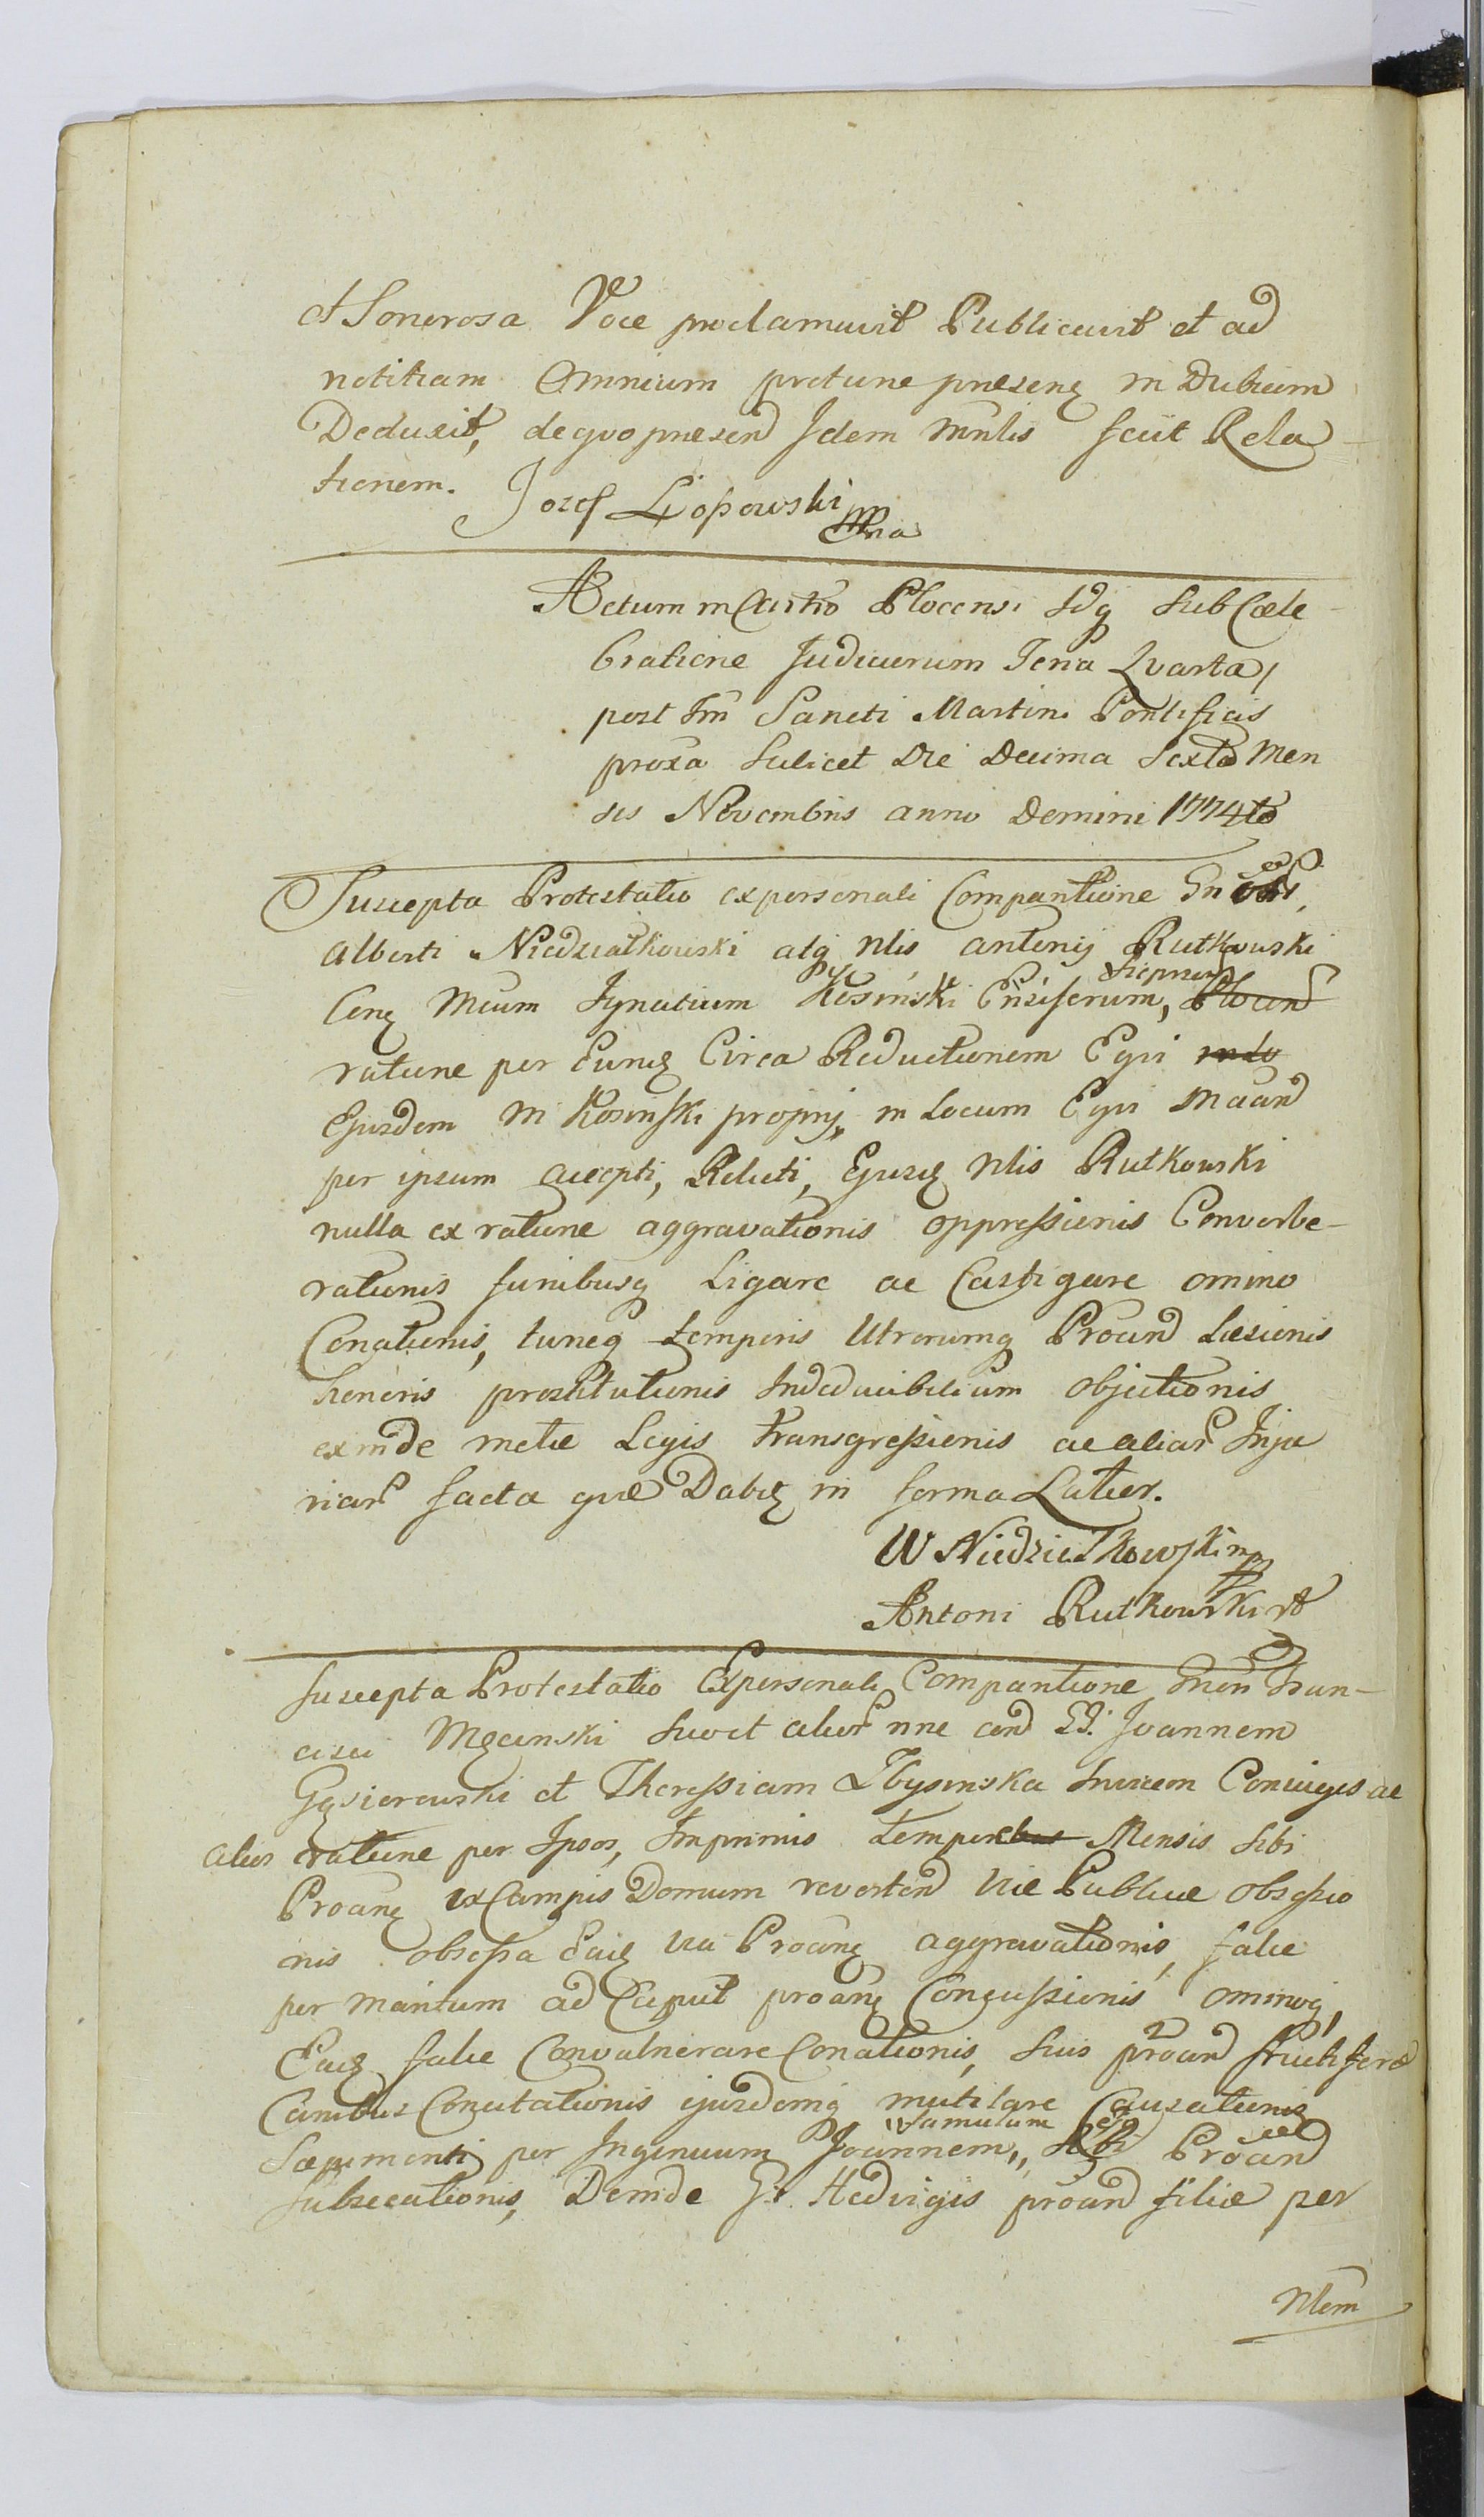 et Sonorosa Voce proclamavit Publicavit et ad
notitiam Omnium protunc praesenq in Dubium
Deduxit, de quo praesend Idem Mnlis fecit Rela-
tionem. Jozef Liossowski mpria
Actum in Castro Plocensi Idq sub Cele-
bratione Judiciorum Feria Quarta
post Fm Sancti Martini Pontificis
proxa Scilicet Die Decima Sexta Men
sis Novembris anno Domini 1774to
Suscepta Protestatio ex personali Compantione
Alberti Niedzialkowski atq Nlis Antonij Rutkowski
Conq Mcum Ignatium Kosinski Ensiferum, Sieprcen Plocens
ratione per Eunq Circa Reductionem Equi
Ejusdem M Kosinski proprij in Locum Equi Maand
per ipsum accepti, Relicti, Ejusq Nlis Rutkowski
nulla ex ratione aggravationis oppressionis Converbe-
rationis funibusq Ligare ac Castigare omino
Conationis, tuncq temporis Utrorumq Proand Laesionis
honoris prostitutionis Indeducibilium objectionis
exinde metae Legis transgressionis ac aliar Inju
riar facta quae Dabq in forma Latior.
W Niedzialkowski mp
Antoni Rutkowski
Suscepta Protestatio Ex personali Compantione Gnen Fran-
cisci Męcinski suo et alior nne con GG. Joannem
Gąsiorowski et Theressiam Zbysinska Invicem Coniuges ac
alios ratione per Ipsos, Imprimis tempore Mensis sibi
Proanq ex Campis Domum revertend Viae Publicae obsessio
nis obsessa Eaiq via Proanq aggravationis, falce
per maritum ad Caput proanq Concussionis ominoq,
Eaiq falce Convulnerare Conationis, suis proand fructifero
Canibus Concitationis ejusdemq mutilare Causationis
Saepimenti per Ingenuum Joannem, famulum sibi Proand
subsecationis, Deinde G. Hedvigis proand filiae per
Nlem